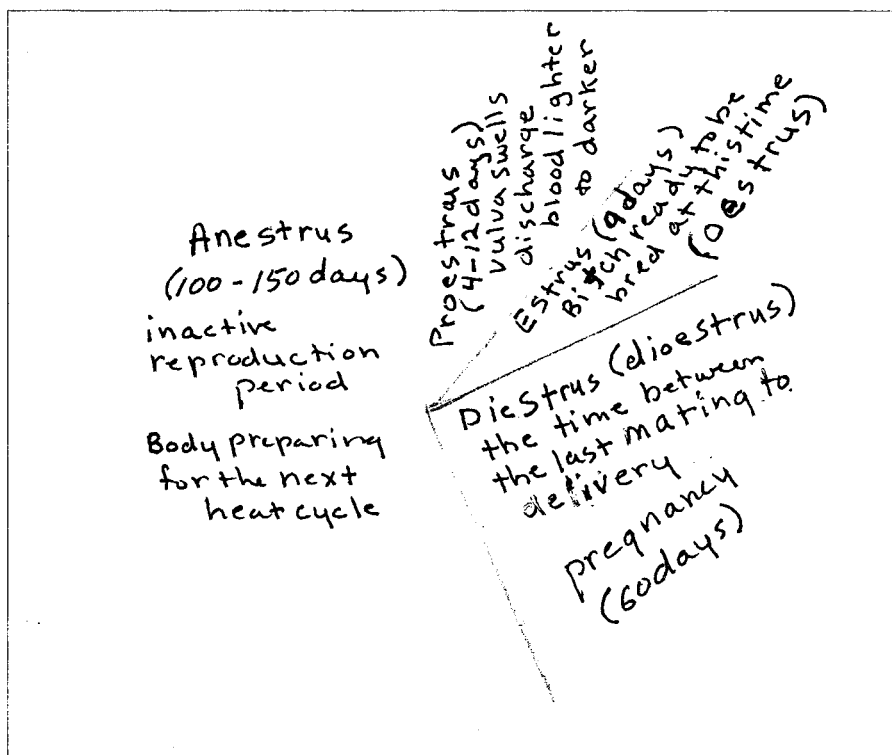 Anestrus
(100-150 days)
inactive
reproduction
period
Body preparing
for the next
heat cycle
Proestrus
(4-12 days)
vulva swells
discharge
blood lighter
to darker
Estrus (9 days)
Bitch ready to be
bred at this time
(Oestrus)
Diestrus (dioestrus)
the time between
the last mating to
delivery
pregnancy
(60 days)